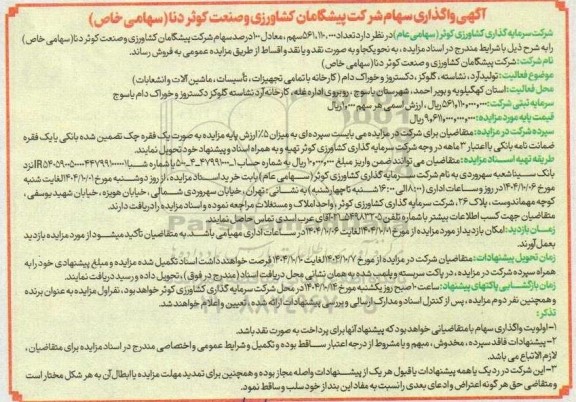 آگهی واگذاری سهام شرکت پیشگامان کشاورزی و صنعت کوثر دنا (سهامی خاص)
شرکت سرمایه گذاری کشاورزی کوثر (سهامی عام) در نظر دارد تعداد ۵۶۱,۱۱۰,۰۰۰ سهم، معادل ۱۰۰ درصد سهام شرکت پیشگامان کشاورزی و صنعت کوثر دنا (سهامی خاص)
را به شرح ذیل با شرایط مندرج در اسناد مزایده، به نحو یکجا و به صورت نقد و یا نقد و اقساط از طریق مزایده عمومی به فروش رساند.
نام شرکت: شرکت پیشگامان کشاورزی و صنعت کوثر دنا (سهامی خاص)
موضوع فعالیت: تولید آرد، نشاسته، گلوکز، دکستروز و خوراک دام (کارخانه با تمامی تجهیزات، تأسیسات، ماشین آلات و انشعابات)
محل فعالیت: استان کهگیلویه و بویر احمد، شهرستان یاسوج، روبروی اداره غله، کارخانه آرد نشاسته گلوکز دکستروز و خوراک دام یاسوج
سرمایه ثبتی شرکت: ۵۶۱,۱۱۰,۰۰۰,۰۰۰ ریال، ارزش اسمی هر سهم ۱,۰۰۰ ریال
قیمت پایه مورد مزایده: ریال
سپرده شرکت در مزایده: متقاضیان برای شرکت در مزایده می بایست سپرده ای به میزان ۵٪ ارزش پایه مزایده به صورت یک فقره چک تضمین شده بانکی یا یک فقره
ضمانت نامه بانکی با اعتبار ۳ ماهه در وجه شرکت سرمایه گذاری کشاورزی کوثر تهیه و به همراه اسناد و پیشنهاد خود تحویل نمایند.
طریقه تهیه اسناد مزایده: متقاضیان می توانند ضمن واریز مبلغ ۱۰,۰۰۰,۰۰۰ ریال به شماره حساب با شماره شبا نزد
بانک سینا شعبه سهروردی به نام شرکت سرمایه گذاری کشاورزی کوثر (سهامی عام) بابت خرید اسناد مزایده، از روز دوشنبه مورخ ۱۴۰۴/۱۰/۰۱ لغایت شنبه
مورخ ۱۴۰۴/۱۰/۰۶ در روز و ساعات اداری (۰۸:۰۰ الی ۱۶:۰۰ شنبه تا چهارشنبه) به نشانی: تهران، خیابان سهروردی شمالی، خیابان هویزه، خیابان شهید یوسفی،
کوچه مهماندوست، پلاک ۲۶، شرکت سرمایه گذاری کشاورزی کوثر، واحد املاک و مستغلات مراجعه نموده و اسناد مزایده را دریافت دارند.
متقاضیان جهت کسب اطلاعات بیشتر با شماره تلفن آقای عرب اسدی تماس حاصل نمایند.
زمان بازدید: امکان بازدید از مورد مزایده از مورخ ۱۴۰۴/۱۰/۰۱ لغایت ۱۴۰۴/۱۰/۰۶ در ساعات اداری مهیا می باشد. به متقاضیان تأکید میشود از مورد مزایده بازدید
بعمل آورند.
زمان تحویل پیشنهادات: متقاضیان شرکت در مزایده از مورخ ۱۴۰۴/۱۰/۰۷ لغایت ۱۴۰۴/۱۰/۱۰ فرصت خواهند داشت اسناد تکمیل شده مزایده و مبلغ پیشنهادی خود را به
همراه سپرده شرکت در مزایده، در پاکت سربسته و پلمب شده به همان نشانی محل دریافت اسناد (مندرج در فوق)، تحویل داده و رسید دریافت نمایند.
زمان بازگشایی پاکتهای پیشنهاد: ساعت ۱۰ صبح روز یکشنبه مورخ ۱۴۰۴/۱۰/۱۴ در محل شرکت سرمایه گذاری کشاورزی کوثر خواهد بود، نفر اول مزایده به عنوان برنده
و همچنین نفر دوم مزایده، پس از کنترل اسناد و مدارک ارسالی و بررسی پیشنهادات ارائه شده، تعیین و اعلام خواهند شد.
تذکر:
۱- اولویت واگذاری سهام با متقاضیانی خواهد بود که پیشنهاد آنها برای پرداخت به صورت نقد باشد.
۲- پیشنهادات فاقد سپرده، مخدوش، مبهم و یا مشروط از درجه اعتبار ساقط بوده و تکمیل و شرایط عمومی و اختصاصی مندرج در اسناد مزایده برای متقاضیان،
لازم الاتباع می باشد.
۳- این شرکت در رد یک یا همه پیشنهادات یا قبول هر یک از پیشنهادات واصله مجاز بوده و همچنین برای تمدید مهلت مزایده یا ابطال آن به هر شکل مختار است
و متقاضی حق هر گونه اعتراض و ادعای بعدی را نسبت به مفاد این بند از خود سلب و ساقط نمود.